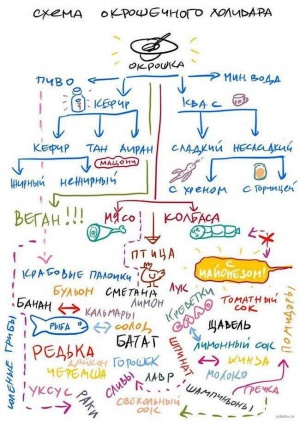 СХЕМА ОКРОШЕЧНОГО ХОЛИВАРА
ОКРОШКА
ПИВО
МИН ВОДА
КЕФИР
КВАС
КЕФИР ТАН АЙРАН
СЛАДКИЙ НЕСЛАДКИЙ
МАЦОНИ
ЖИРНЫЙ НЕЖИРНЫЙ
С ХРЕНОМ С ГОРЧИЦЕЙ
ВЕГАН!!!
МЯСО КОЛБАСА
ПТИЦА
С МАЙОНЕЗОМ!
КРАБОВЫЕ ПАЛОЧКИ
БУЛЬОН СМЕТАНА ЛУК
БАНАН ЛИМОН
КРЕВЕТКИ
ТОМАТНЫЙ СОК
КАЛЬМАРЫ
РЫБА СОЛОД
ЩАВЕЛЬ
БАТАТ
ЛИМОННЫЙ СОК
РЕДЬКА
ДАЙКОН
ГОРОШЕК
ШПИНАТ
КИНЗА
ЧЕРЕМША
ЛАВР
МОЛОКО
УКСУС
РАКИ
СЛИВЫ
СВЕКОЛЬНЫЙ СОК
ШАМПИНЬОНЫ
ГРЕЧКА
СОЛЕНЫЕ ГРИБЫ
ПОМИДОРЫ